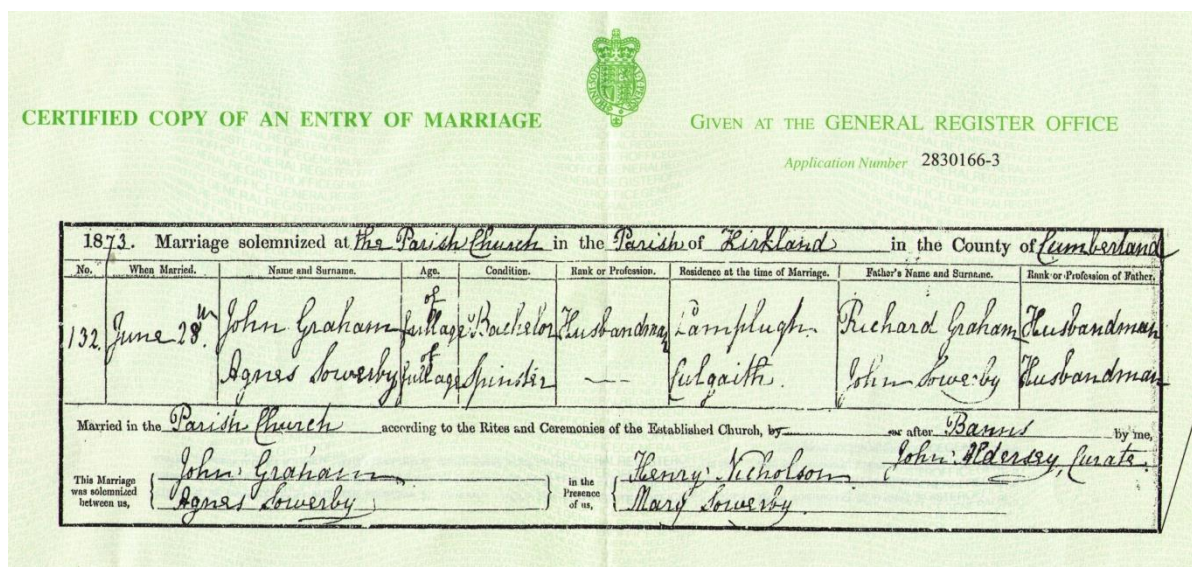 CERTIFIED COPY OF AN ENTRY OF MARRIAGE
GIVEN AT THE GENERAL REGISTER OFFICE
Application Number 2830166-3
1873. Marriage solemnized at the Parish Church in the Parish of Kirkland in the County of Cumberland
No. When Married. Name and Surname. Age. Condition. Rank or Profession. Residence at the time of Marriage. Father's Name and Surname. Rank or Profession of Father.
132. June 28th John Graham of full age Bachelor Husbandman Lamplugh. Richard Graham Husbandman
Agnes Sowerby of full age Spinster — Culgaith. John Sowerby Husbandman
Married in the Parish Church according to the Rites and Ceremonies of the Established Church, by or after Banns by me,
John Aldersey, Curate.
This Marriage was solemnized between us,
John Graham
Agnes Sowerby
in the Presence of us,
Henry Nicholson
Mary Sowerby